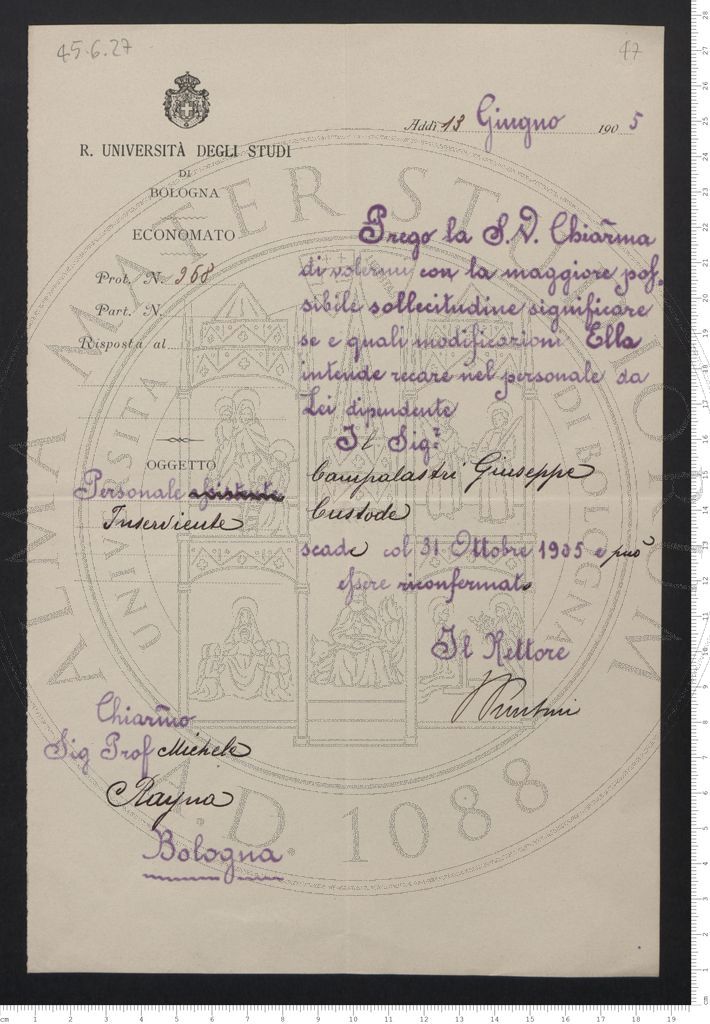 45.6.27
47
Addì 13 Giugno 1905
R. UNIVERSITÀ DEGLI STUDI
DI
BOLOGNA
ECONOMATO
Prot. N. 968
Part. N.
Risposta al
OGGETTO
Personale
Inserviente
Prego la S.V. Chiar̃ma
di volermi con la maggiore pos-
sibile sollecitudine significare
se e quali modificazioni Ella
intende recare nel personale da
Lei dipendente
Il Sigr
Campalastri Giuseppe
Custode
scade col 31 Ottobre 1905 e può
essere riconfermato
Il Rettore
VPuntoni
Chiar̃mo
Sig Prof Michele
Rayna
Bologna
ALMA MATER STUDIORUM
UNIVERSITA DI BOLOGNA
A.D. 1088